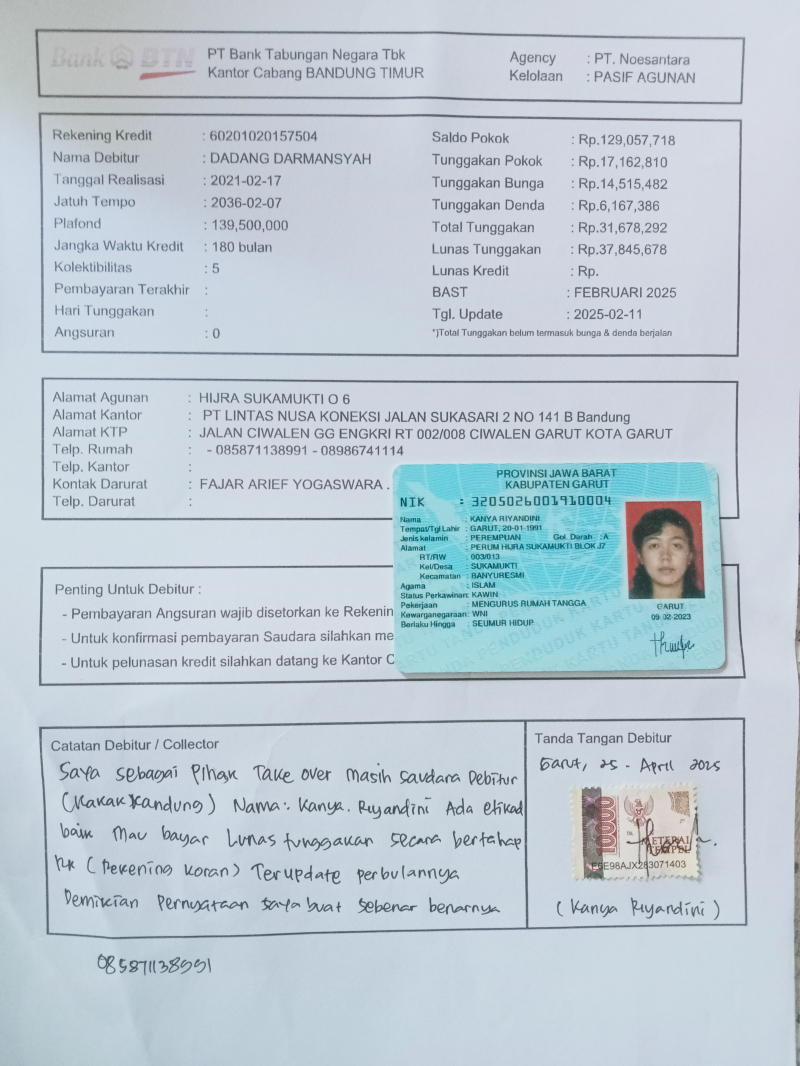 Bank BTN
PT Bank Tabungan Negara Tbk
Kantor Cabang BANDUNG TIMUR
Agency : PT. Noesantara
Kelolaan : PASIF AGUNAN
Rekening Kredit : 60201020157504
Nama Debitur : DADANG DARMANSYAH
Tanggal Realisasi : 2021-02-17
Jatuh Tempo : 2036-02-07
Plafond : 139,500,000
Jangka Waktu Kredit : 180 bulan
Kolektibilitas : 5
Pembayaran Terakhir :
Hari Tunggakan :
Angsuran : 0
Saldo Pokok : Rp.129,057,718
Tunggakan Pokok : Rp.17,162,810
Tunggakan Bunga : Rp.14,515,482
Tunggakan Denda : Rp.6,167,386
Total Tunggakan : Rp.31,678,292
Lunas Tunggakan : Rp.37,845,678
Lunas Kredit : Rp.
BAST : FEBRUARI 2025
Tgl. Update : 2025-02-11
*)Total Tunggakan belum termasuk bunga & denda berjalan
Alamat Agunan : HIJRA SUKAMUKTI O 6
Alamat Kantor : PT LINTAS NUSA KONEKSI JALAN SUKASARI 2 NO 141 B Bandung
Alamat KTP : JALAN CIWALEN GG ENGKRI RT 002/008 CIWALEN GARUT KOTA GARUT
Telp. Rumah : - 085871138991 - 08986741114
Telp. Kantor :
Kontak Darurat : FAJAR ARIEF YOGASWARA .
Telp. Darurat :
PROVINSI JAWA BARAT
KABUPATEN GARUT
NIK : 3205026001910004
Nama : KANYA RIYANDINI
Tempat/Tgl Lahir : GARUT, 20-01-1991
Jenis kelamin : PEREMPUAN Gol. Darah : A
Alamat : PERUM HIJRA SUKAMUKTI BLOK J7
RT/RW : 003/013
Kel/Desa : SUKAMUKTI
Kecamatan : BANYURESMI
Agama : ISLAM
Status Perkawinan: KAWIN
Pekerjaan : MENGURUS RUMAH TANGGA
Kewarganegaraan: WNI
Berlaku Hingga : SEUMUR HIDUP
GARUT
09-02-2023
Penting Untuk Debitur :
- Pembayaran Angsuran wajib disetorkan ke Rekenin
- Untuk konfirmasi pembayaran Saudara silahkan me
- Untuk pelunasan kredit silahkan datang ke Kantor C
Catatan Debitur / Collector
Saya sebagai Pihak Take over masih saudara Debitur
(Kakak Kandung) Nama : Kanya. Riyandini Ada etikad
baik mau bayar Lunas tunggakan secara bertahap
RK (Rekening Koran) Terupdate perbulannya
Demikian Pernyataan saya buat sebenar benarnya
Tanda Tangan Debitur
Garut, 25 - April 2025
10000
METERAI
TEMPEL
E6E98AJX283071403
(Kanya Riyandini)
085871138991